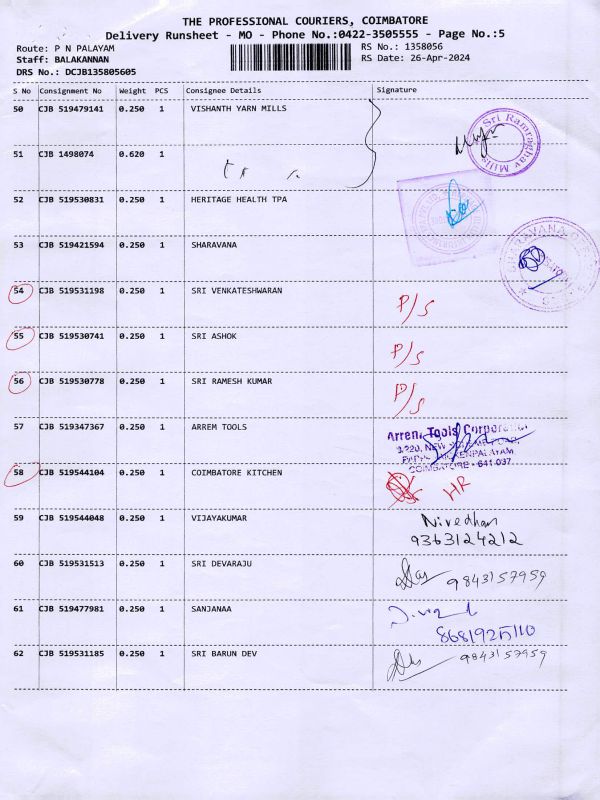 THE PROFESSIONAL COURIERS, COIMBATORE
Delivery Runsheet - MO - Phone No.:0422-3505555 - Page No.:5
Route: P N PALAYAM
RS No.: 1358056
Staff: BALAKANNAN
RS Date: 26-Apr-2024
DRS No.: DCJB135805605
S No Consignment No Weight PCS Consignee Details Signature
50 CJB 519479141 0.250 1 VISHANTH YARN MILLS
Sri Ramraghav Mills
51 CJB 1498074 0.620 1
52 CJB 519530831 0.250 1 HERITAGE HEALTH TPA
53 CJB 519421594 0.250 1 SHARAVANA
54 CJB 519531198 0.250 1 SRI VENKATESHWARAN P/S
55 CJB 519530741 0.250 1 SRI ASHOK P/S
56 CJB 519530778 0.250 1 SRI RAMESH KUMAR P/S
57 CJB 519347367 0.250 1 ARREM TOOLS
Arrem Tools Corporation
COIMBATORE - 641 037
58 CJB 519544104 0.250 1 COIMBATORE KITCHEN HR
59 CJB 519544048 0.250 1 VIJAYAKUMAR Nivedhan
9363124212
60 CJB 519531513 0.250 1 SRI DEVARAJU 9843157959
61 CJB 519477981 0.250 1 SANJANAA
8681925110
62 CJB 519531185 0.250 1 SRI BARUN DEV 9843157959